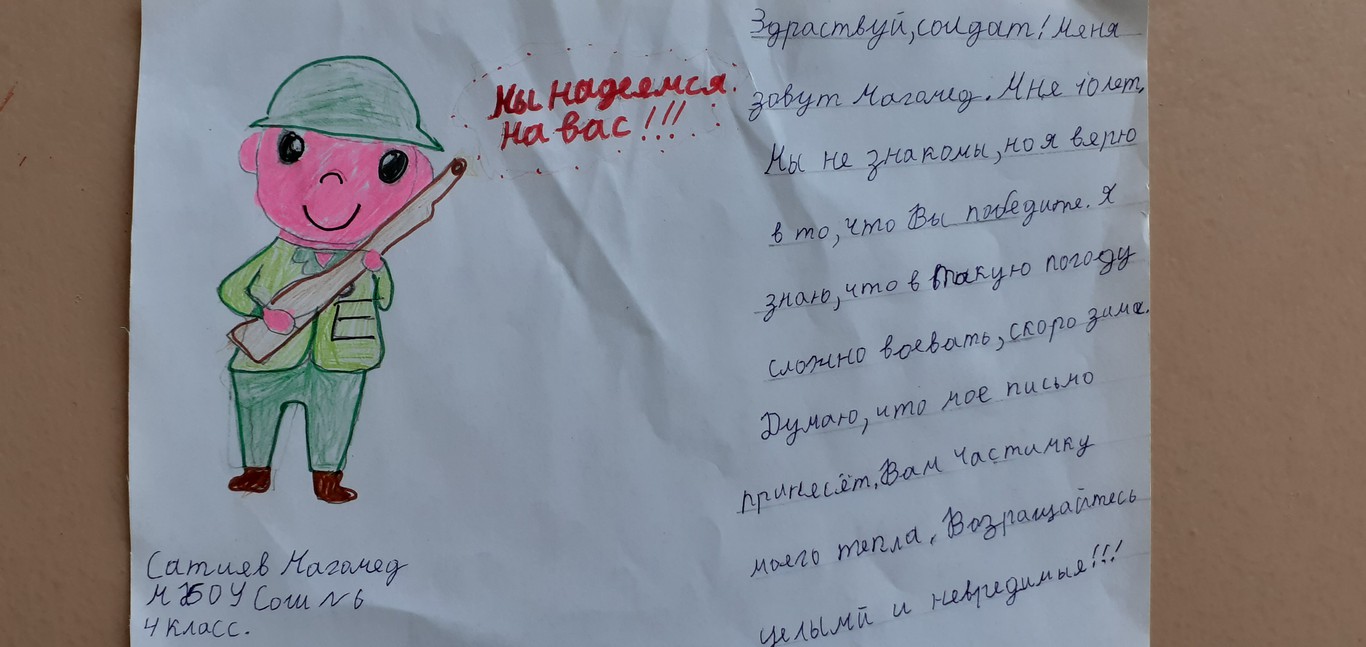 Мы надеемся
на вас!!!
Здраствуй, солдат! Меня
зовут Магомед. Мне 10 лет.
Мы не знакомы, но я верю
в то, что Вы победите. Я
знаю, что в такую погоду
сложно воевать, скоро зима.
Думаю, что мое письмо
принесёт, Вам частичку
моего тепла. Возращайтесь
целымй и невредимыя!!!
Сатиев Магомед
МБОУ Сош №6
4 класс.